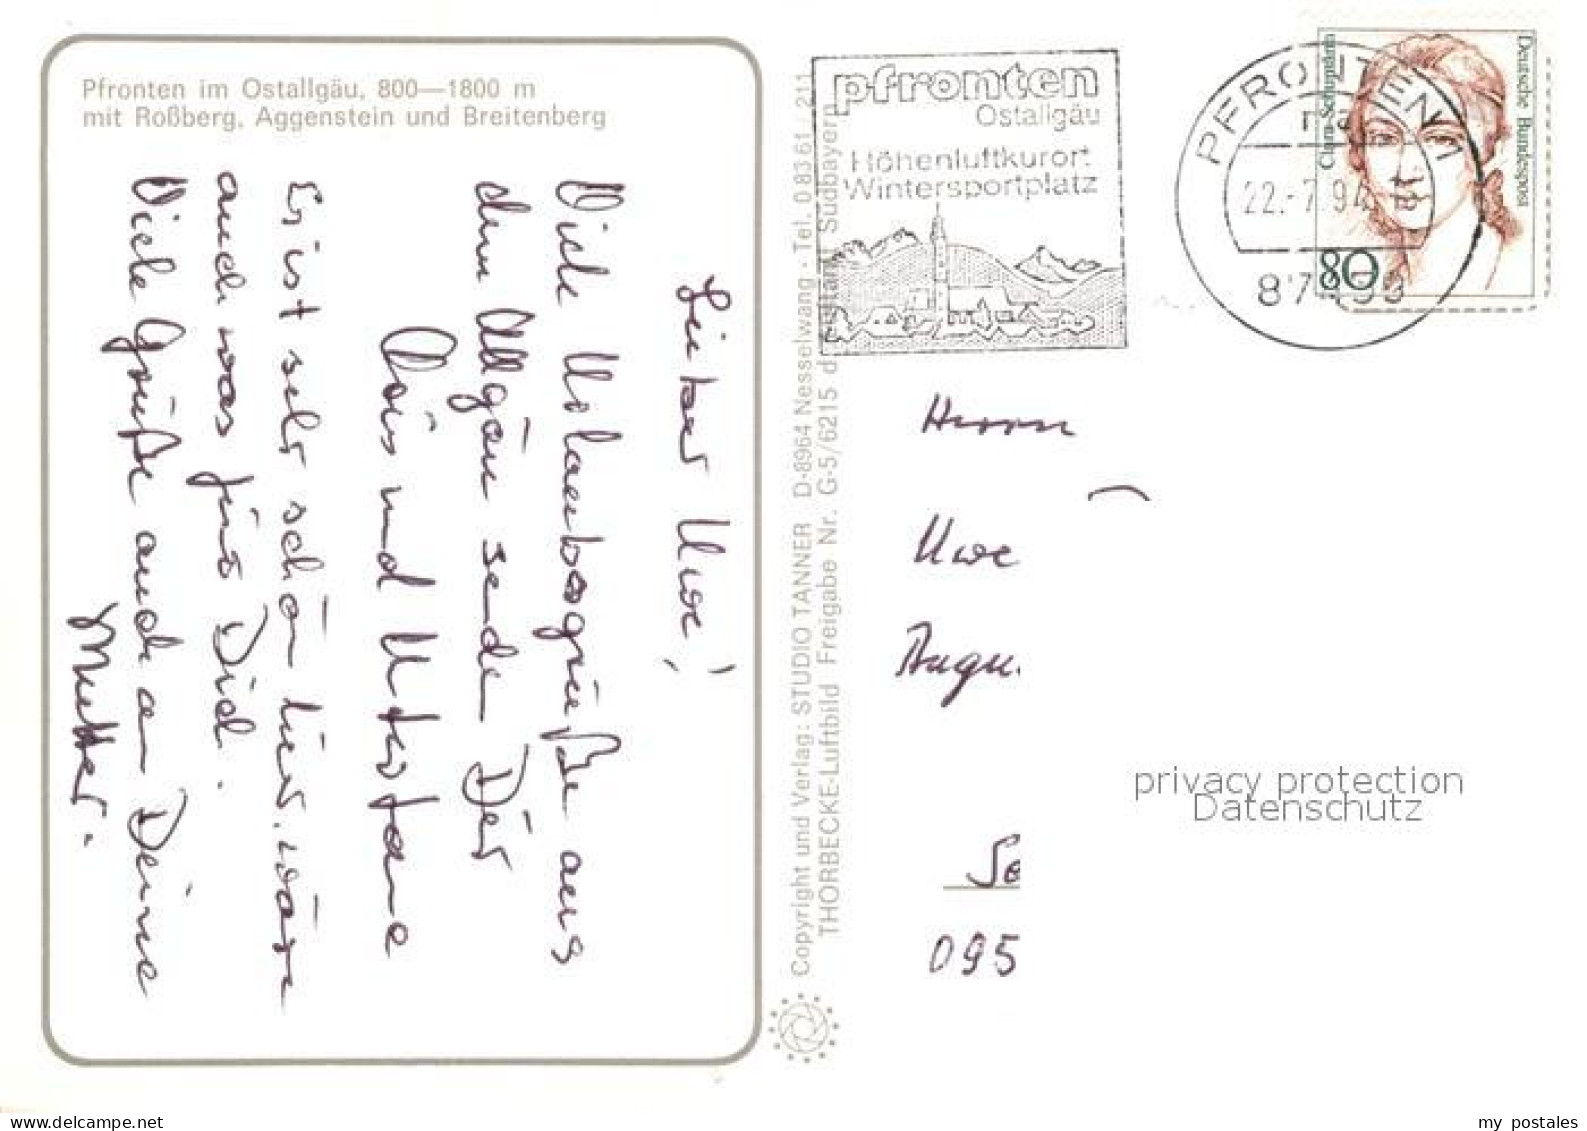 Pfronten im Ostallgäu, 800—1800 m
mit Roßberg, Aggenstein und Breitenberg
Lieber Uwe!
Viele Urlaubsgrüße aus
dem Allgäu senden Dir
und
Es ist sehr schön hier. wäre
auch was für Dich.
Viele Grüße auch an Deine
Mutter.
Copyright und Verlag: STUDIO TANNER D-8964 Nesselwang - Tel. 0 83 61 / 211
THORBECKE-Luftbild Freigabe Nr. G-5/6215 Südbayern
pfronten
Ostallgäu
Höhenluftkurort
Wintersportplatz
PFRONTEN 1
22.-7.94
Clara Schumann
Deutsche Bundespost
80
Herrn
Uwe
Augu.
Se
095
privacy protection
Datenschutz
www.delcampe.net
my postales